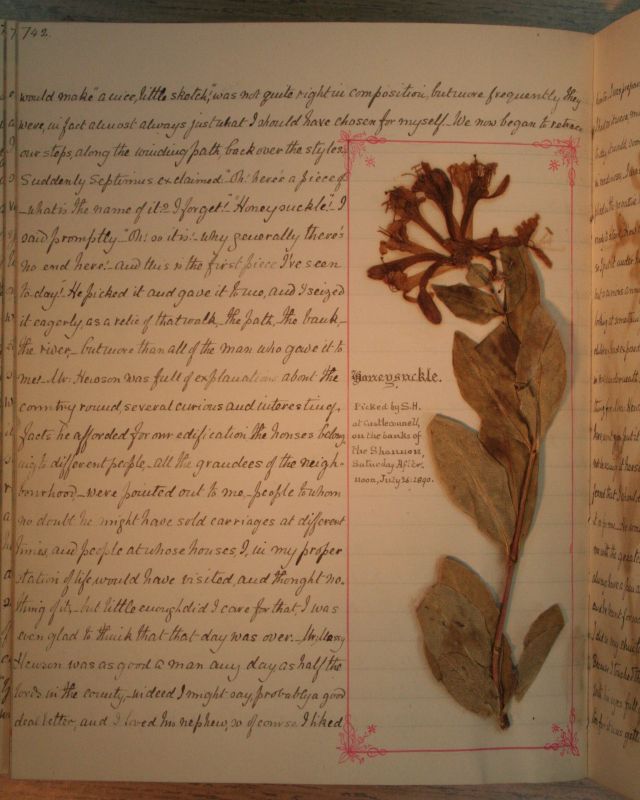 742.
would make "a nice, little sketch," was not quite right in composition, but more frequently they
were, in fact almost always just what I should have chosen for myself. We now began to retrace
our steps, along the winding path, back over the styles.
Suddenly Septimus exclaimed "Oh! here's a piece of
– what is the name of it? I forget!" "Honeysuckle!" I
said promptly. "Oh! so it is! – why generally there's
no end here! – and this is the first piece I've seen
to-day!" He picked it and gave it to me, and I seized
it eagerly, as a relic of that walk – the path, the bank,
the river, – but more than all of the man who gave it to
me! – Mr. Hewson was full of explanations about the
country round, several curious and interesting
facts he afforded for our edification, the houses belong-
ing to different people – all the grandees of the neigh-
bourhood – were pointed out to me, – people to whom
no doubt he might have sold carriages at different
times, and people at whose houses, I, in my proper
station of life, would have visited, and thought no-
thing of it, – but little enough did I care for that, I was
even glad to think that that day was over. – Mr.
Hewson was as good a man any day as half the
lords in the county, – indeed I might say, probably a good
deal better, and I loved his nephew, so of course I liked
Honeysuckle.
Picked by S.H.
at Castleconnell,
on the banks of
the Shannon,
Saturday After-
noon, July 26. 1890.